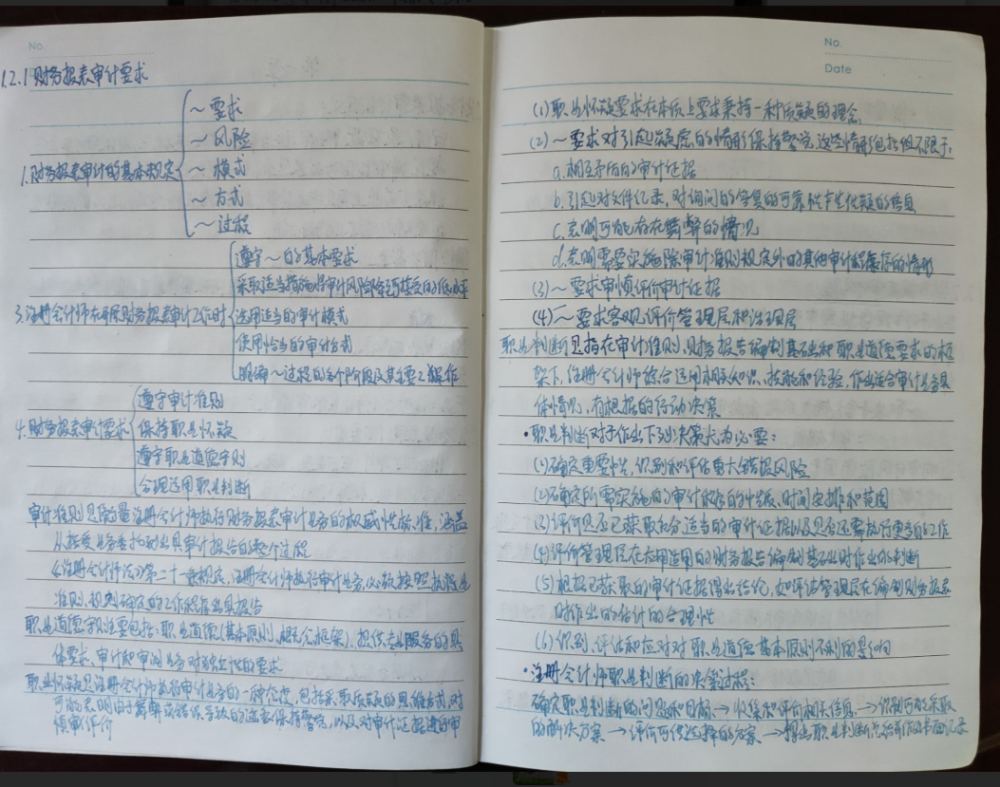 No.
1.2.1 财务报表审计要求
1.财务报表审计的基本规定
～要求
～风险
～模式
～方式
～过程
3.注册会计师在开展财务报表审计工作时
遵守～的基本要求
采取适当措施将审计风险降至可接受的低水平
选用适当的审计模式
使用恰当的审计方式
明确～过程的各个阶段及其主要工作
4.财务报表审计要求
遵守审计准则
保持职业怀疑
遵守职业道德守则
合理运用职业判断
审计准则是衡量注册会计师执行财务报表审计业务的权威性标准，涵盖
从接受业务委托到出具审计报告的整个过程
《注册会计师法》第二十一条规定，注册会计师执行审计业务，必须按照执业
准则、规则确定的工作程序出具报告
职业道德守则主要包括：职业道德（基本原则、概念框架）、提供专业服务的具
体要求、审计和审阅业务对独立性的要求
职业怀疑是注册会计师执行审计业务的一种态度，包括采取质疑的思维方式，对
可能表明由于舞弊或错误导致的错报保持警觉，以及对审计证据进行审
慎评价
No
Date
(1)职业怀疑要求在本质上要求秉持一种质疑的理念
(2)～要求对引起疑虑的情形保持警觉，这些情形包括但不限于：
a.相互矛盾的审计证据
b.引起对文件记录、对询问的答复的可靠性产生怀疑的信息
c.表明可能存在舞弊的情况
d.表明需要实施除审计准则规定外的其他审计程序的情形
(3)～要求审慎评价审计证据
(4)～要求客观评价管理层和治理层
职业判断是指在审计准则、财务报告编制基础和职业道德要求的框
架下，注册会计师综合运用相关知识、技能和经验，作出适合审计业务具
体情况、有根据的行动决策
·职业判断对于作出下列决策尤为必要：
(1)确定重要性，识别和评估重大错报风险
(2)确定所需实施的审计程序的性质、时间安排和范围
(3)评价是否已获取充分适当的审计证据以及是否还需执行更多的工作
(4)评价管理层在应用适用的财务报告编制基础时作出的判断
(5)根据已获取的审计证据得出结论，如评估管理层在编制财务报表
时作出的估计的合理性
(6)识别、评估和应对对职业道德基本原则不利的影响
·注册会计师职业判断的决策过程：
确定职业判断的问题和目标→收集和评价相关信息→识别可能采取
的解决方案→评价可供选择的方案→得出职业判断结论并作出书面记录